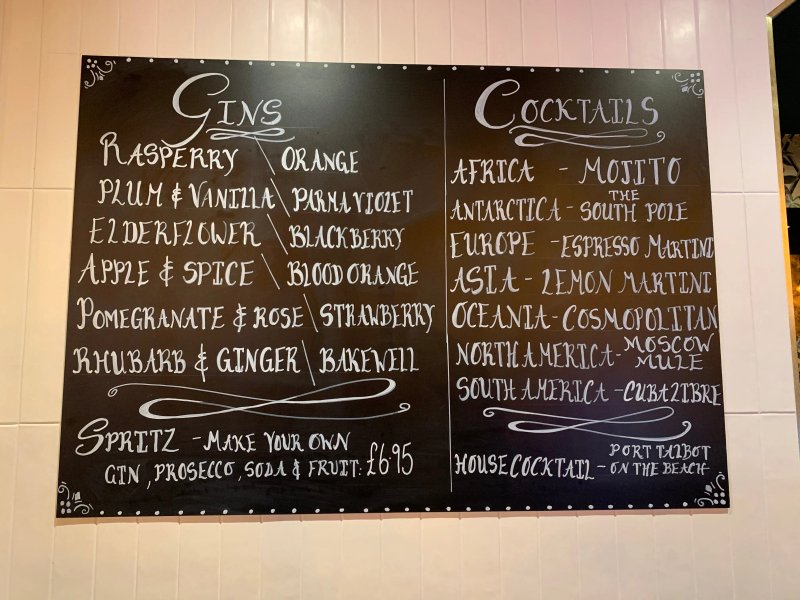 GINS
RASPERRY \ ORANGE
PLUM & VANILLA \ PARMA VIOLET
ELDERFLOWER \ BLACKBERRY
APPLE & SPICE \ BLOOD ORANGE
POMEGRANATE & ROSE \ STRAWBERRY
RHUBARB & GINGER \ BAKEWELL
SPRITZ - MAKE YOUR OWN
GIN, PROSECCO, SODA & FRUIT: £6.95
COCKTAILS
AFRICA - MOJITO
ANTARCTICA - THE SOUTH POLE
EUROPE - ESPRESSO MARTINI
ASIA - LEMON MARTINI
OCEANIA - COSMOPOLITAN
NORTH AMERICA - MOSCOW MULE
SOUTH AMERICA - CUBA LIBRE
HOUSE COCKTAIL - PORT TALBOT ON THE BEACH